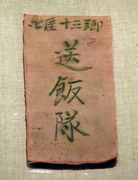 七 十三鄉
送飯隊